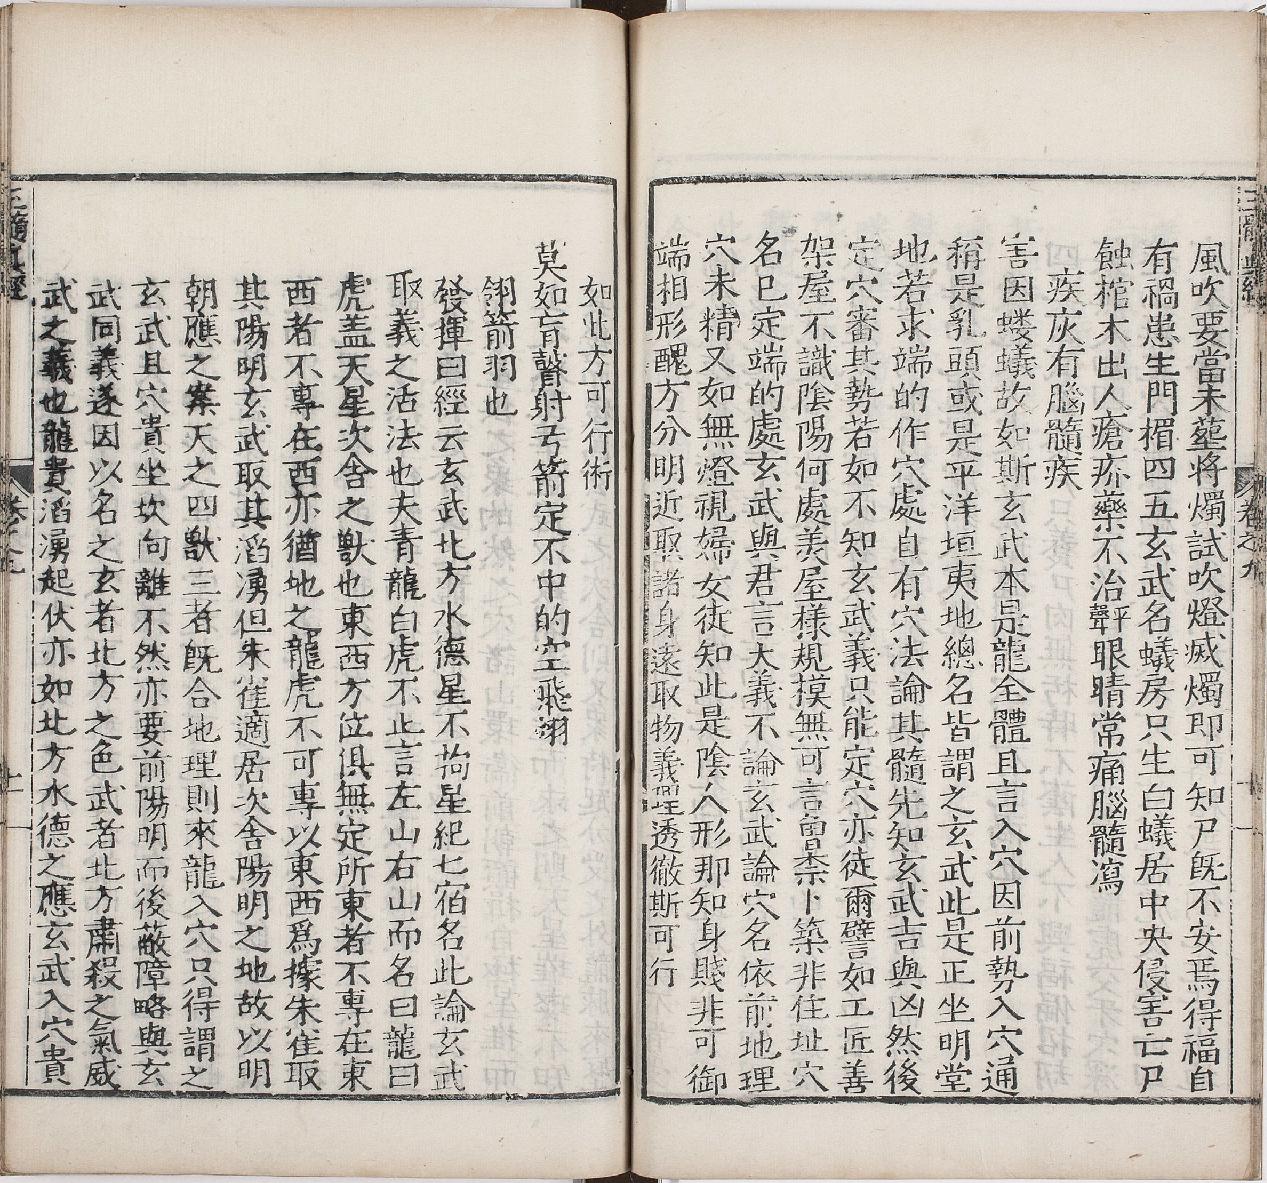 風吹要當未塟將燭試吹燈滅燭即可知尸旣不安焉得福自
有禍患生門楣四五玄武名蟻房只生白蟻居中央侵害亡尸
蝕棺木出人瘡疥藥不治聲眼睛常痛腦髓瀉
疾灰有腦髓疾
害因螻蟻故如斯玄武本是龍全體且言入穴因前勢入穴通
稱是乳頭或是平洋垣夷地總名皆謂之玄武此是正坐明堂
地若求端的作穴處自有穴法論其髓先知玄武吉與凶然後
定穴審其勢若如不知玄武義只能定穴亦徒爾譬如工匠善
架屋不識陰陽何處羙屋樣規摸無可言曾柰卜築非住址穴
名已定端的處玄武與君言大義不論玄武論穴名依前地理
穴未精又如無燈視婦女徒知此是陰人形那知身賤非可御
端相形醜方分明近取諸身遠取物義理透徹斯可行
如此方可行術
莫如盲瞽射弓箭定不中的空飛翊
翊箭羽也
發揮曰經云玄武北方水德星不拘星紀七宿名此論玄武
取義之活法也夫青龍白虎不止言左山右山而名曰龍曰
虎盖天星次舍之獸也東西方位俱無定所東者不專在東
西者不專在西亦猶地之龍虎不可專以東西爲據朱雀取
其陽明玄武取其滔湧但朱雀適居次舍陽明之地故以明
朝應之案天之四獸三者旣合地理則來龍入穴只得謂之
玄武且穴貴坐坎向離不然亦要前陽明而後蔽障略與玄
武同義遂因以名之玄者北方之色武者北方肅殺之氣威
武之義也龍貴滔湧起伏亦如北方水德之應玄武入穴貴